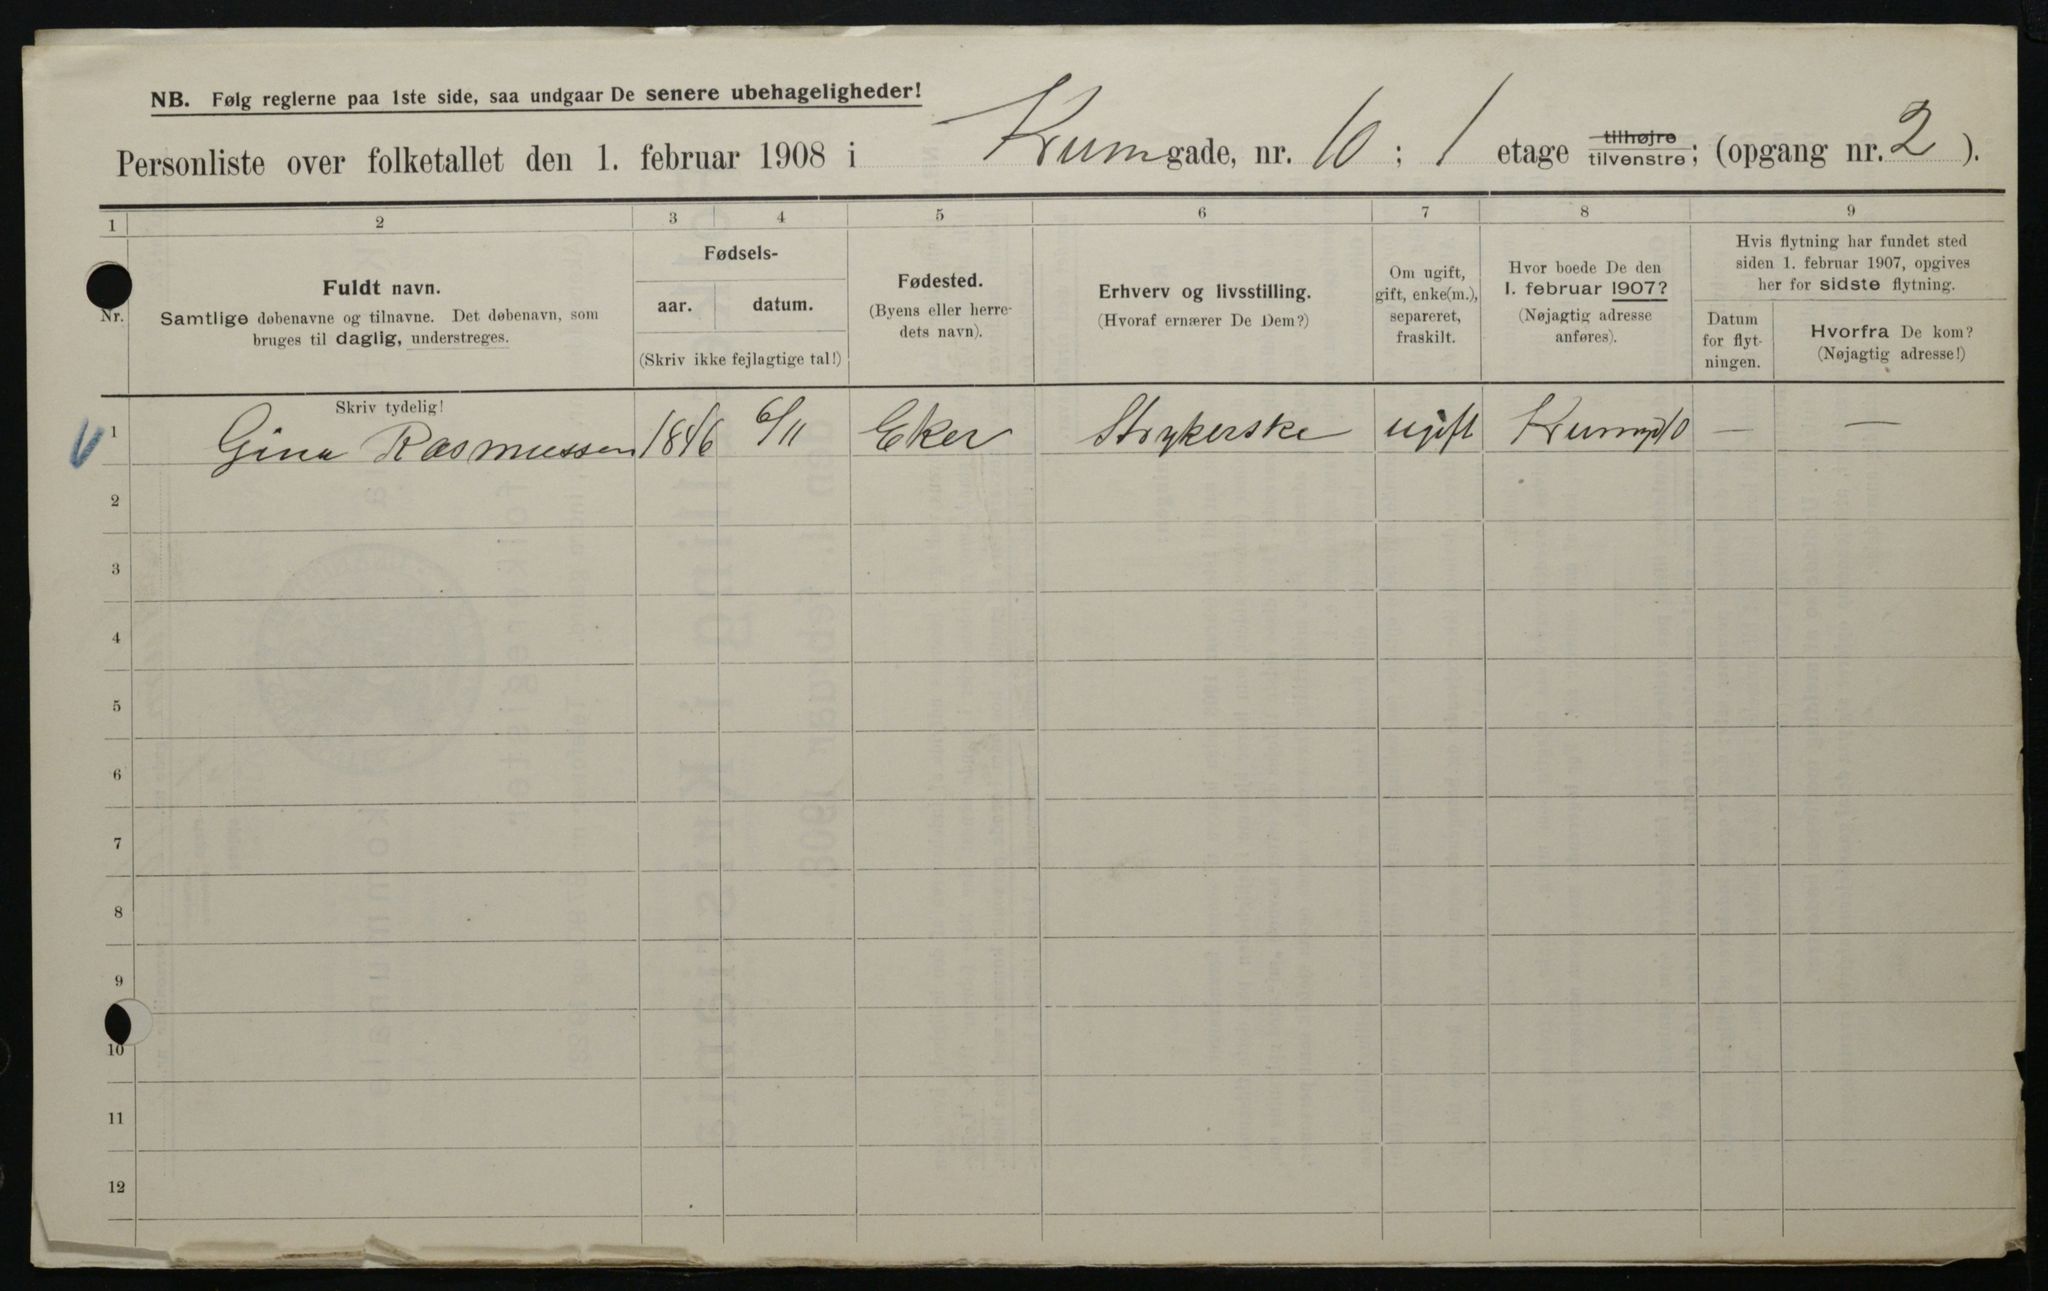 NB. Følg reglerne paa 1ste side, saa undgaar De senere ubehageligheder!
Personliste over folketallet den 1. februar 1908 i Krumgade, nr. 10 ; 1 etage tilhøjre tilvenstre; (opgang nr. 2 ).
1 2 3 4 5 6 7 8 9
Nr.
Fuldt navn.
Samtlige døbenavne og tilnavne. Det døbenavn, som
bruges til daglig, understreges.
Fødsels-
aar. datum.
(Skriv ikke fejlagtige tal!)
Fødested.
(Byens eller herre-
dets navn).
Erhverv og livsstilling.
(Hvoraf ernærer De Dem?)
Om ugift,
gift, enke(m.),
separeret,
fraskilt.
Hvor boede De den
1. februar 1907?
(Nøjagtig adresse
anføres).
Hvis flytning har fundet sted
siden 1. februar 1907, opgives
her for sidste flytning.
Datum
for flyt-
ningen.
Hvorfra De kom?
(Nøjagtig adresse!)
Skriv tydelig!
1 Gina Rasmussen 1846 6/11 Eker Strykerske ugift Krumgd 10 — —
2
3
4
5
6
7
8
9
10
11
12